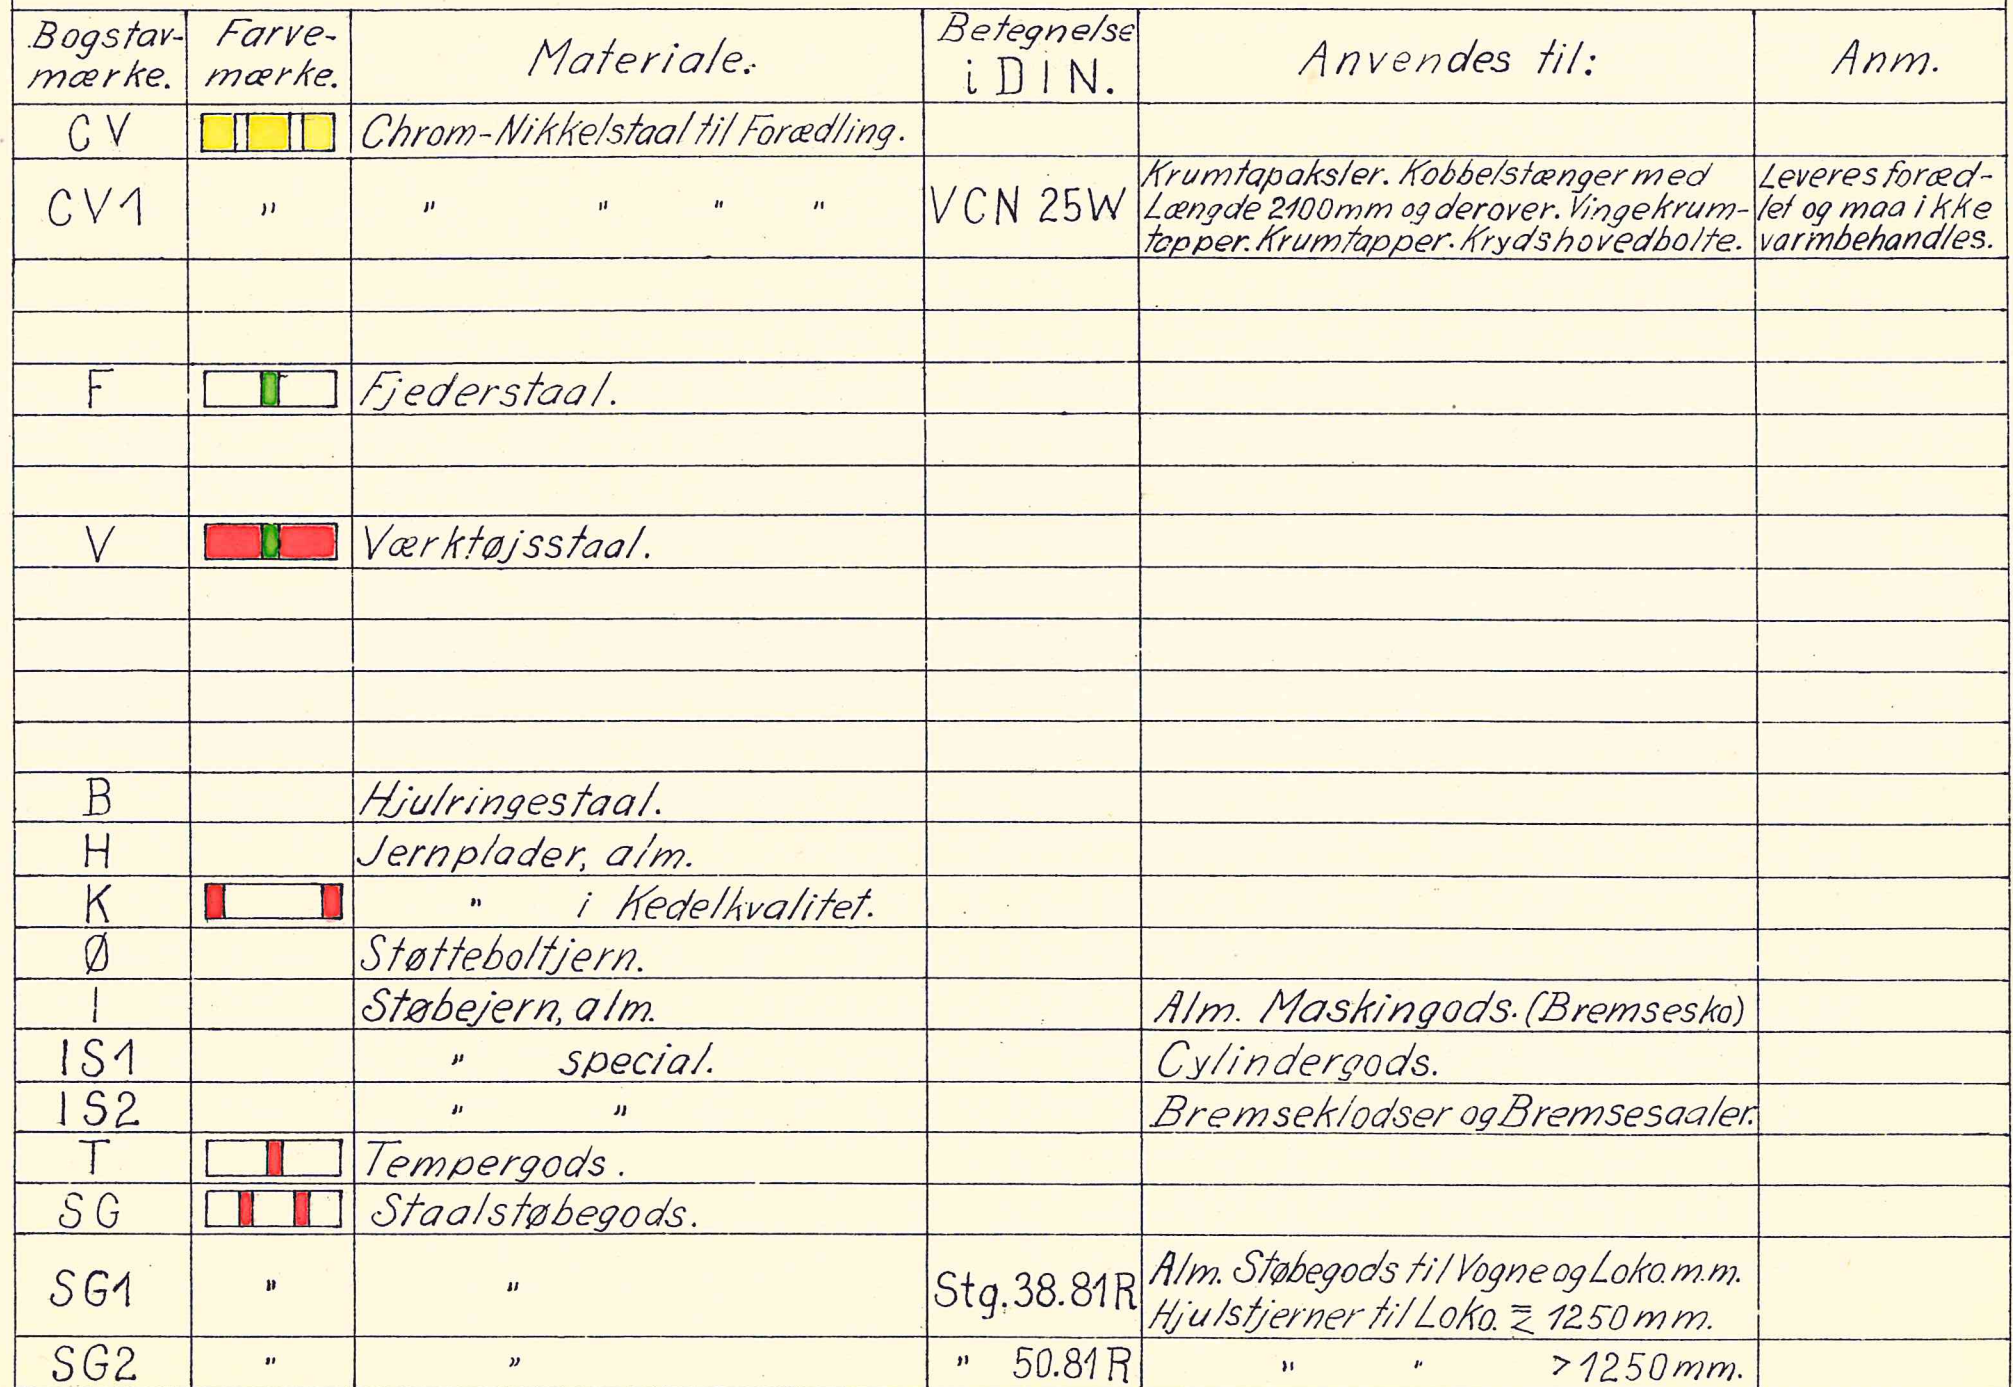 Bogstav-mærke. Farve-mærke. Materiale. Betegnelse i DIN. Anvendes til: Anm.
CV Chrom-Nikkelstaal til Forædling.
CV1 " " " " " VCN 25W Krumtapaksler. Kobbelstænger med Længde 2100mm og derover. Vingekrum-tapper. Krumtapper. Krydshovedbolte. Leveres foræd-let og maa ikke varmbehandles.
F Fjederstaal.
V Værktøjsstaal.
B Hjulringestaal.
H Jernplader, alm.
K " i Kedelkvalitet.
Ø Støtteboltjern.
I Støbejern, alm. Alm. Maskingods. (Bremsesko)
IS1 " special. Cylindergods.
IS2 " " Bremseklodser og Bremsesaaler.
T Tempergods.
SG Staalstøbegods.
SG1 " " Stg. 38.81R Alm. Støbegods til Vogne og Loko. m.m.
Hjulstjerner til Loko. 1250mm.
SG2 " " " 50.81R " " >1250mm.